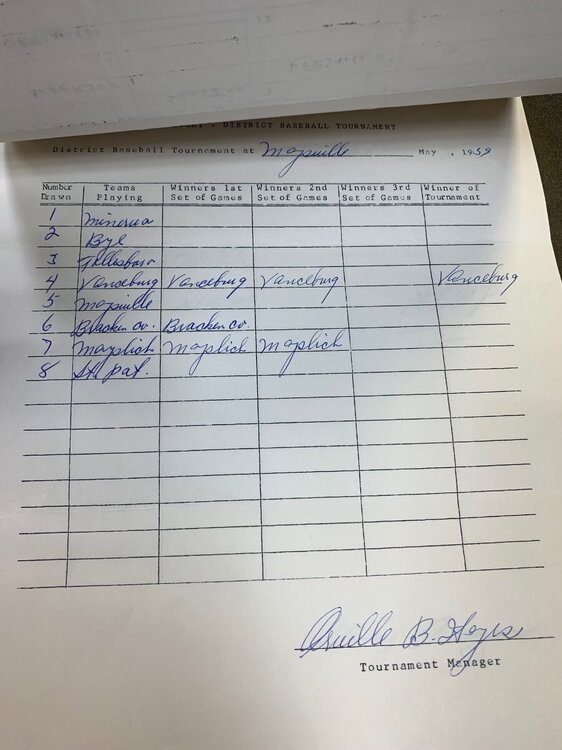 DISTRICT BASEBALL TOURNAMENT
District Baseball Tournament at Maysville May, 1959
Number Drawn Teams Playing Winners 1st Set of Games Winners 2nd Set of Games Winners 3rd Set of Games Winner of Tournament
1 Minerva
2 Bye
3 Tollesboro
4 Vanceburg Vanceburg Vanceburg Vanceburg
5 Maysville
6 Bracken Co. Bracken Co.
7 Mayslick Mayslick Mayslick
8 St. Pat.
Orville B. Hayes
Tournament Manager